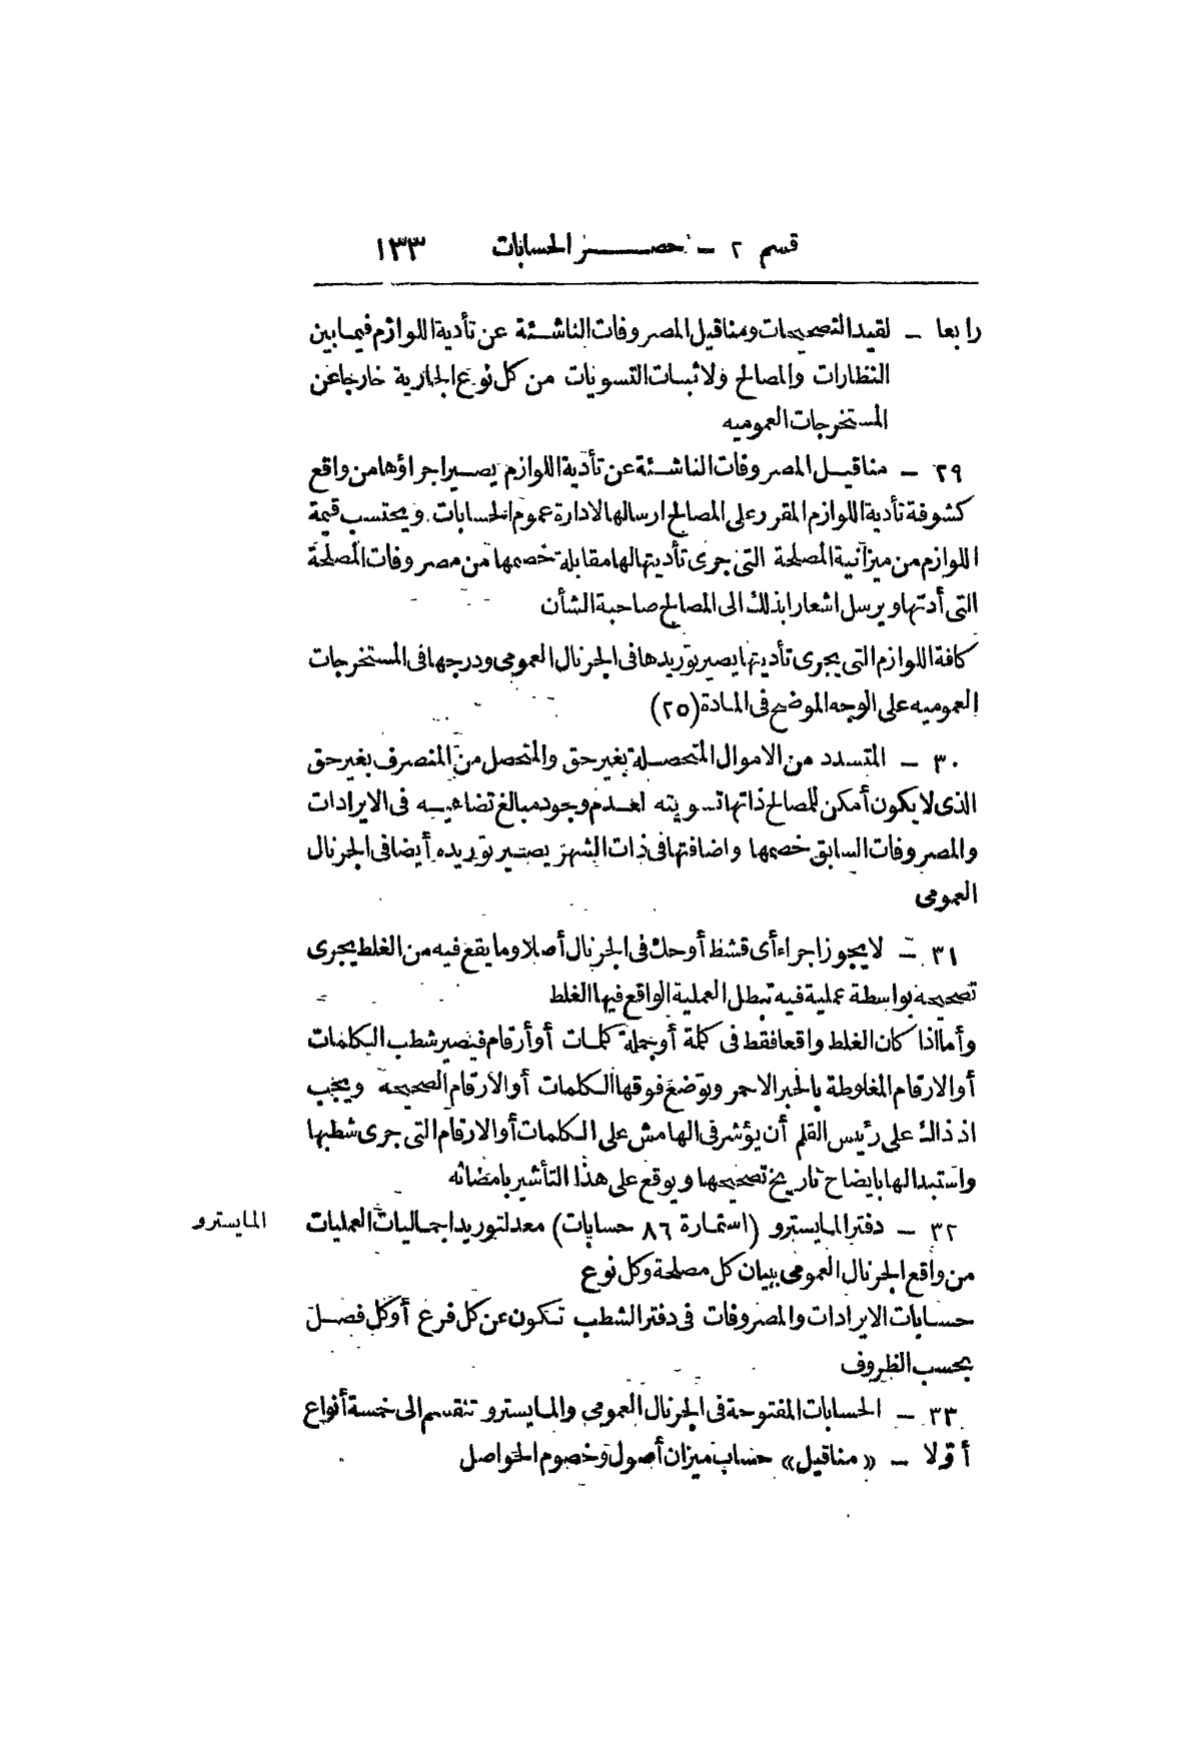 قسم ٢ — حصر الحسابات ١٣٣
رابعا — لقيد التصحيحات ومناقيل المصروفات الناشئة عن تأدية اللوازم فيما بين
النظارات والمصالح ولاثبات التسويات من كل نوع الجارية خارجا عن
المستخرجات العموميه
٢٩ — مناقيل المصروفات الناشئة عن تأدية اللوازم يصير اجراؤها من واقع
كشوفة تأدية اللوازم المقرر على المصالح ارسالها لادارة عموم الحسابات ويحتسب قيمة
اللوازم من ميزانية المصلحة التى جرى تأديتها لها مقابلة خصمها من مصروفات المصلحة
التى أدتها ويرسل اشعار ابذلك الى المصالح صاحبة الشأن
كافة اللوازم التى يجرى تأديتها يصير توريدها فى الجرنال العمومى ودرجها فى المستخرجات
العموميه على الوجه الموضح فى المادة (٢٥)
٣٠ — المتسدد من الاموال المتحصلة بغير حق والمتحصل من المنصرف بغير حق
الذى لا يكون أمكن للمصالح ذاتها تسويته لعدم وجود مبالغ تضاهيه فى الايرادات
والمصروفات السابق خصمها واضافتها فى ذات الشهر يصير توريده أيضا فى الجرنال
العمومى
٣١ — لا يجوز اجراء أى قشط أو حك فى الجرنال أصلا وما يقع فيه من الغلط يجرى
تصحيحه بواسطة عملية فيه تبطل العملية الواقع فيها الغلط
وأما اذا كان الغلط واقعا فقط فى كلمة أو جملة كلمات أو أرقام فيصير شطب الكلمات
أو الارقام المغلوطة بالحبر الاحمر وتوضع فوقها الكلمات أو الارقام الصحيحة ويجب
اذ ذاك على رئيس القلم أن يؤشر فى الهامش على الكلمات أو الارقام التى جرى شطبها
واستبدالها بايضاح تاريخ تصحيحها ويوقع على هذا التأشير بامضائه
٣٢ — دفتر المايسترو (استمارة ٨٦ حسابات) معد لتوريد اجماليات العمليات
المايسترو
من واقع الجرنال العمومى ببيان كل مصلحة وكل نوع
حسابات الايرادات والمصروفات فى دفتر الشطب تكون عن كل فرع أو كل فصل
بحسب الظروف
٣٣ — الحسابات المفتوحة فى الجرنال العمومى والمايسترو تنقسم الى خمسة أنواع
أولا — «مناقيل» حساب ميزان أصول وخصوم الحواصل